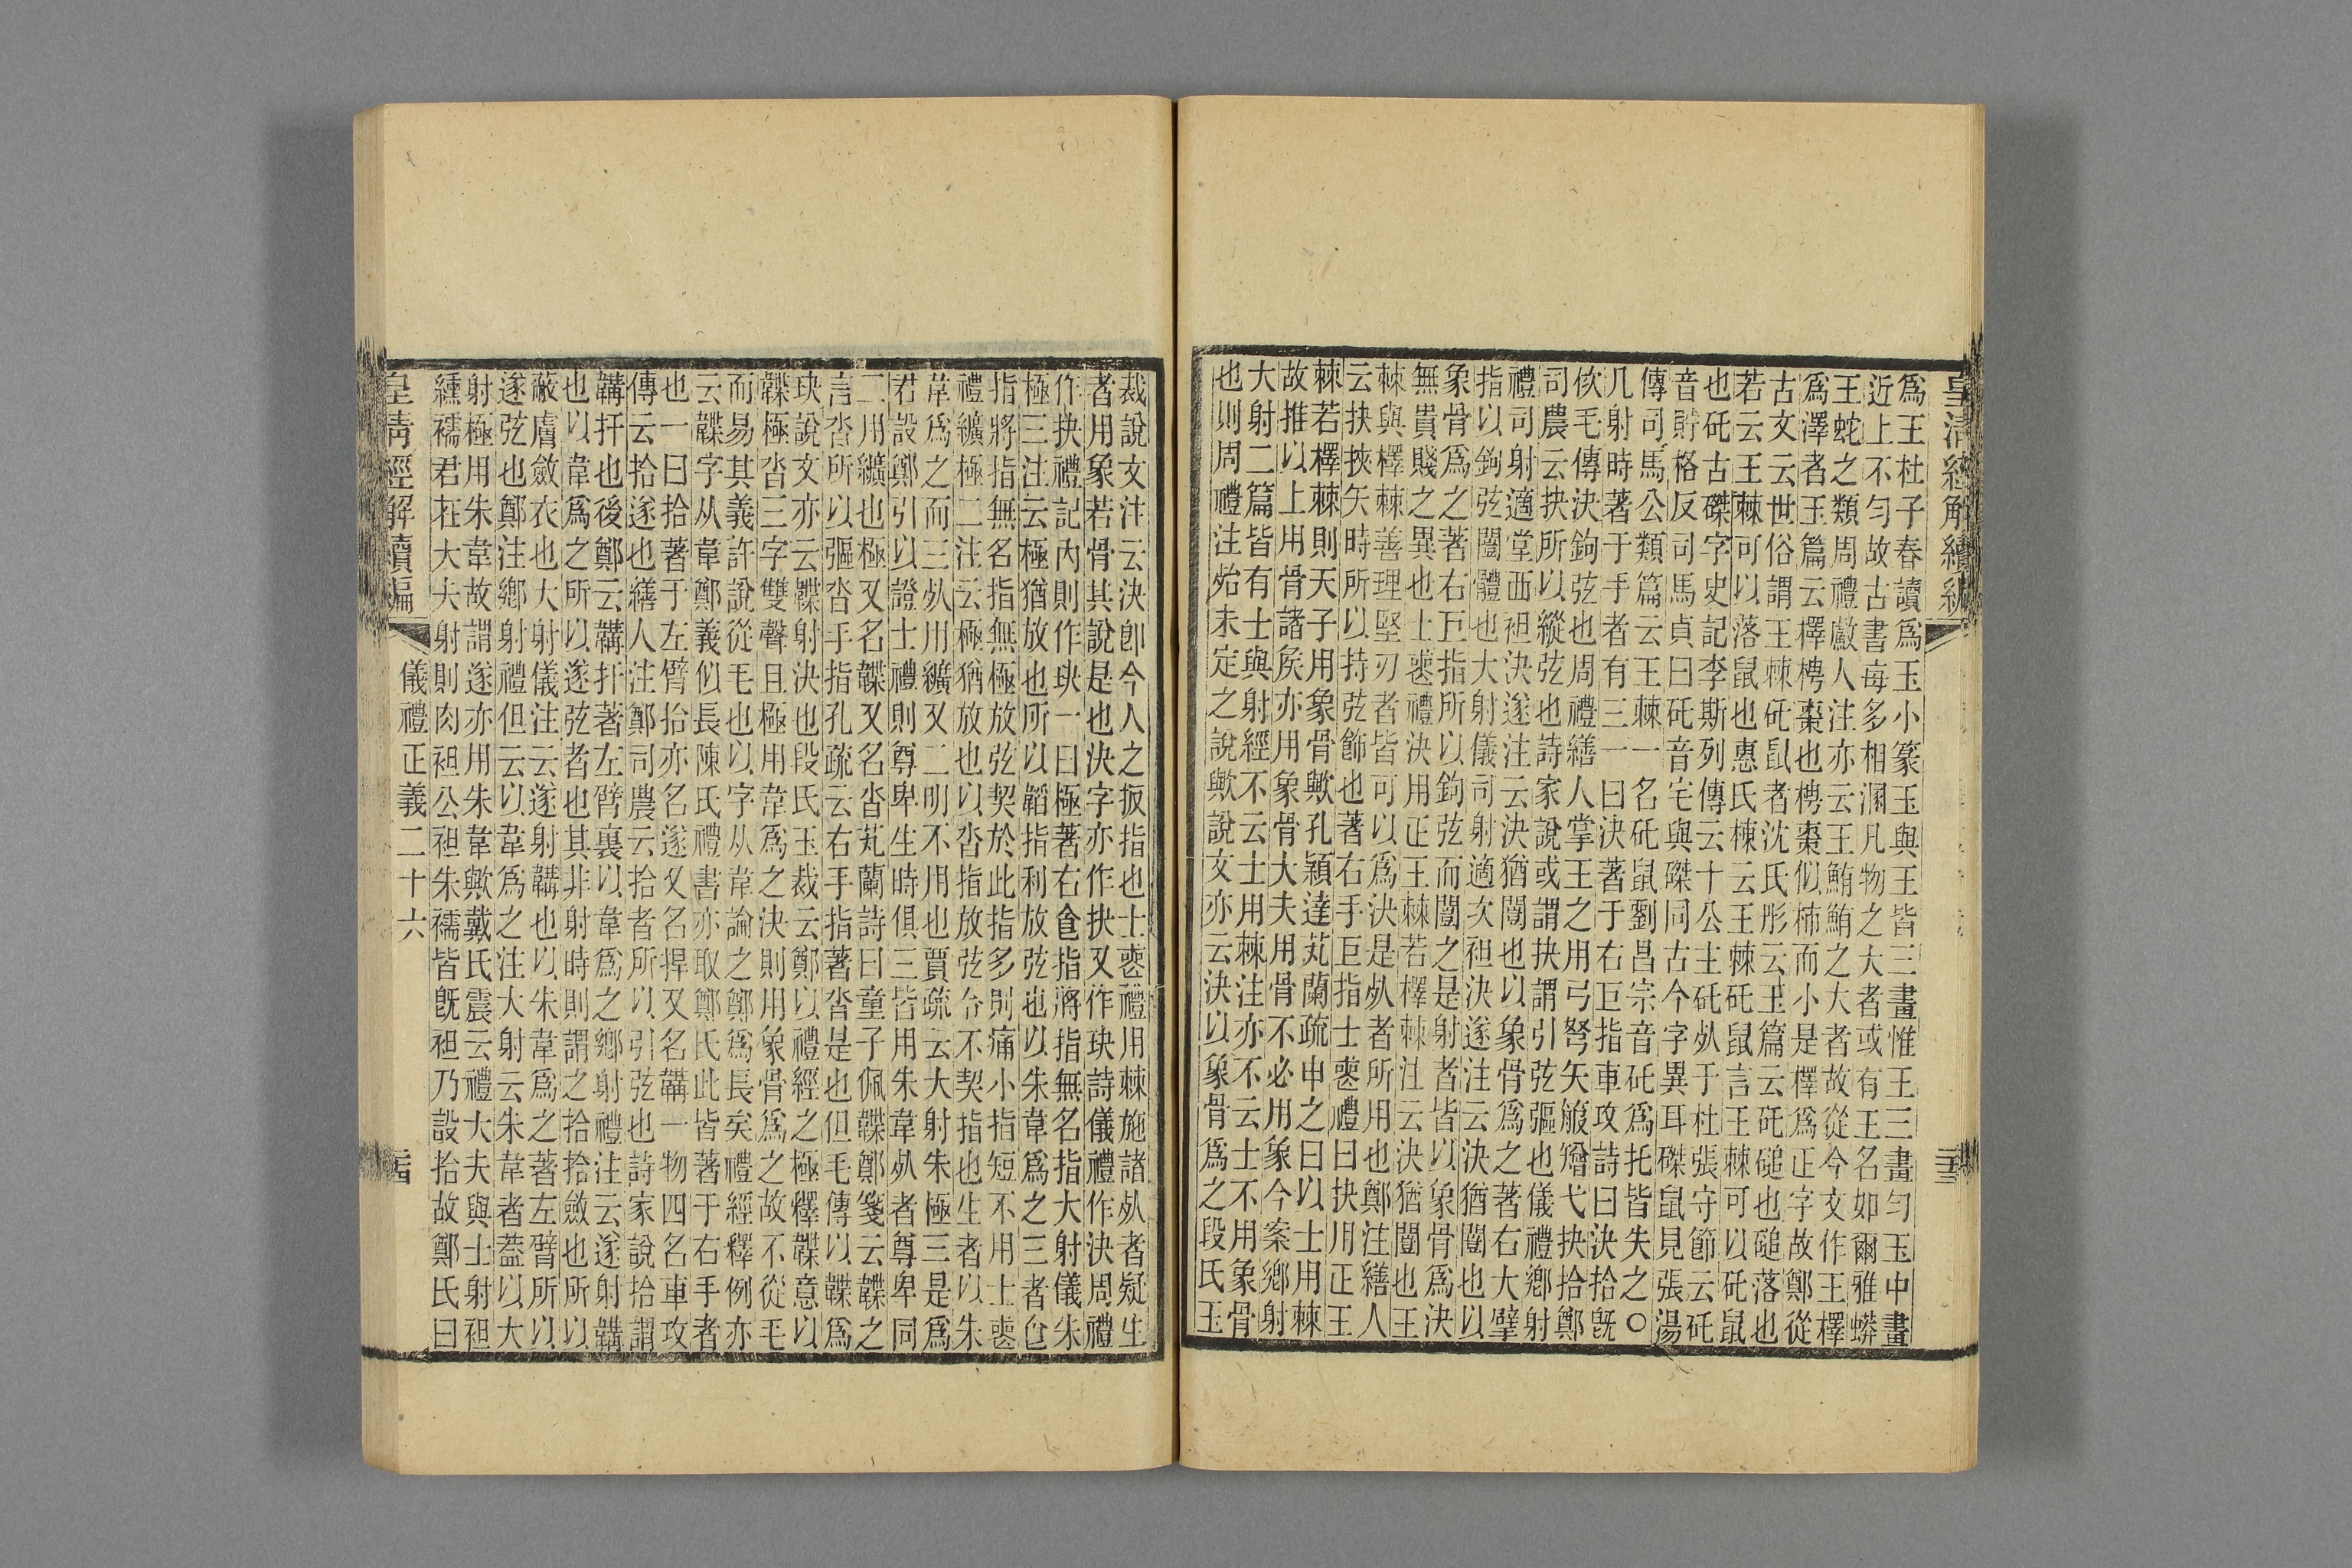 皇清經解續編
為王杜子春讀為玉小篆玉與王皆三畫惟王三畫勻玉中畫
近上不勻故古書每多相溷凡物之大者或有王名如爾雅蟒
王蛇之類周禮䱷人注亦云王鮪鮪之大者故從今文作王檡
為澤者玉篇云檡梬棗也梬棗似柿而小是檡為正字故鄭從
古文云世俗謂王棘矺鼠者沈氏彤云玉篇云矺磓也磓落也
若云王棘可以落鼠也惠氏棟云王棘矺鼠言王棘可以矺鼠
也矺古磔字史記李斯列傳云十公主矺死于杜張守節云矺
音貯格反司馬貞曰矺音宅與磔同古今字異耳磔鼠見張湯
傳司馬公類篇云王棘一名矺鼠劉昌宗音矺為托皆失之○
几射時著于手者有三一曰決著于右巨指車攻詩曰決拾旣
佽毛傳決鉤弦也周禮繕人掌王之用弓弩矢箙矰弋抉拾鄭
司農云抉所以縱弦也詩家說或謂抉謂引弦彄也儀禮鄉射
禮司射適堂西袒決遂注云決猶闓也以象骨為之著右大擘
指以鉤弦闓體也大射儀司射適次袒決遂注云決猶闓也以
象骨為之著右巨指所以鉤弦而闓之是射者皆以象骨為決
無貴賤之異也士喪禮決用正王棘若檡棘注云決猶闓也王
棘與檡棘善理堅刃者皆可以為決是死者所用也鄭注繕人
云抉挾矢時所以持弦飾也著右手巨指士喪禮曰抉用正王
棘若檡棘則天子用象骨歟孔穎達芄蘭疏申之曰以士用棘
故推以上用骨諸矦亦用象骨大夫用骨不必用象今案鄉射
大射二篇皆有士與射經不云士用棘注亦不云士不用象骨
也則周禮注殆未定之說歟說文亦云決以象骨為之段氏玉
裁說文注云決卽今人之扳指也士喪禮用棘施諸死者疑生
者用象若骨其說是也決字亦作抉又作玦詩儀禮作決周禮
作抉禮記內則作玦一曰極著右食指將指無名指大射儀朱
極三注云極猶放也所以韜指利放弦也以朱韋為之三者食
指將指無名指無極放弦契於此指多則痛小指短不用士喪
禮纊極二注云極猶放也以沓指放弦令不契指也生者以朱
韋為之而三死用纊又二明不用也賈疏云大射朱極三是為
君設鄭引以證士禮則尊卑生時俱三皆用朱韋死者尊卑同
二用纊也極又名韘又名沓芄蘭詩曰童子佩韘鄭箋云韘之
言沓所以彄沓手指孔疏云右手指著沓是也但毛傳以韘為
玦說文亦云韘射決也段氏玉裁云鄭以禮經之極釋韘意以
韘極沓三字雙聲且極用韋為之決則用象骨為之故不從毛
而易其義許說從毛也以字从韋論之鄭為長矣禮經釋例亦
云韘字从韋鄭義似長陳氏禮書亦取鄭氏此皆著于右手者
也一曰拾著于左臂拾亦名遂又名捍又名韝一物四名車攻
傳云拾遂也繕人注鄭司農云拾者所以引弦也詩家說拾謂
韝扞也後鄭云韝扞著左臂裏以韋為之鄉射禮注云遂射韝
也以韋為之所以遂弦者也其非射時則謂之拾拾斂也所以
蔽膚斂衣也大射儀注云遂射韝也以朱韋為之著左臂所以
遂弦也鄭注鄉射禮但云以韋為之注大射云朱韋者蓋以大
射極用朱韋故謂遂亦用朱韋歟戴氏震云禮大夫與士射袒
纁襦君在大夫射則肉袒公袒朱襦皆旣袒乃設拾故鄭氏曰
皇清經解續編　儀禮正義二十六